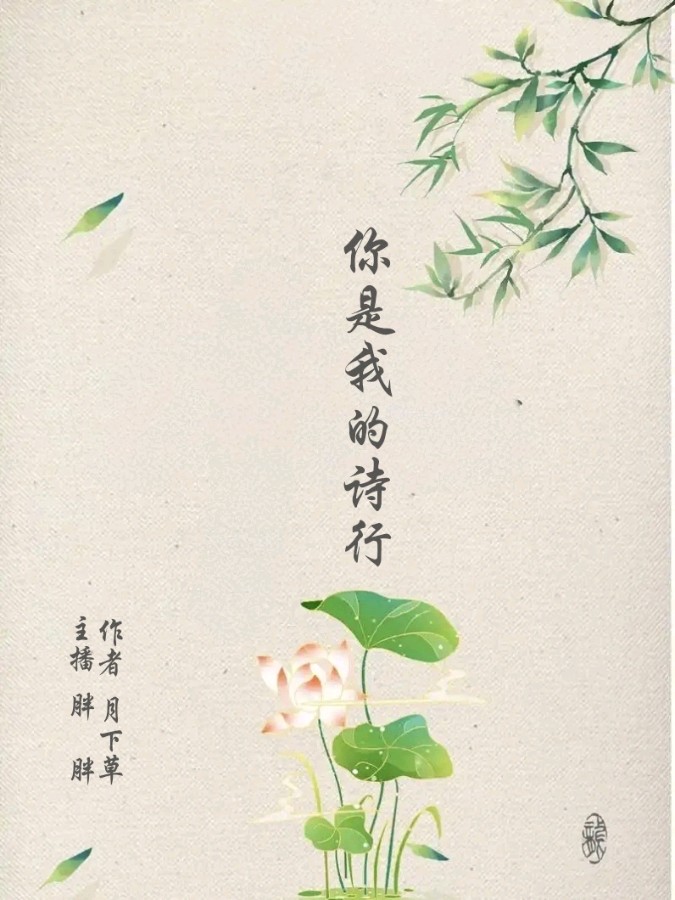 你是我的诗行
作者 月下草
主播 胖 胖